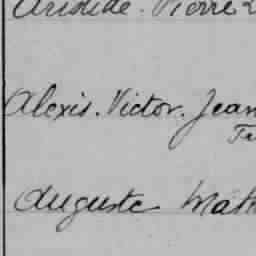 Aristide. Pierre
Alexis. Victor. Jean
Auguste